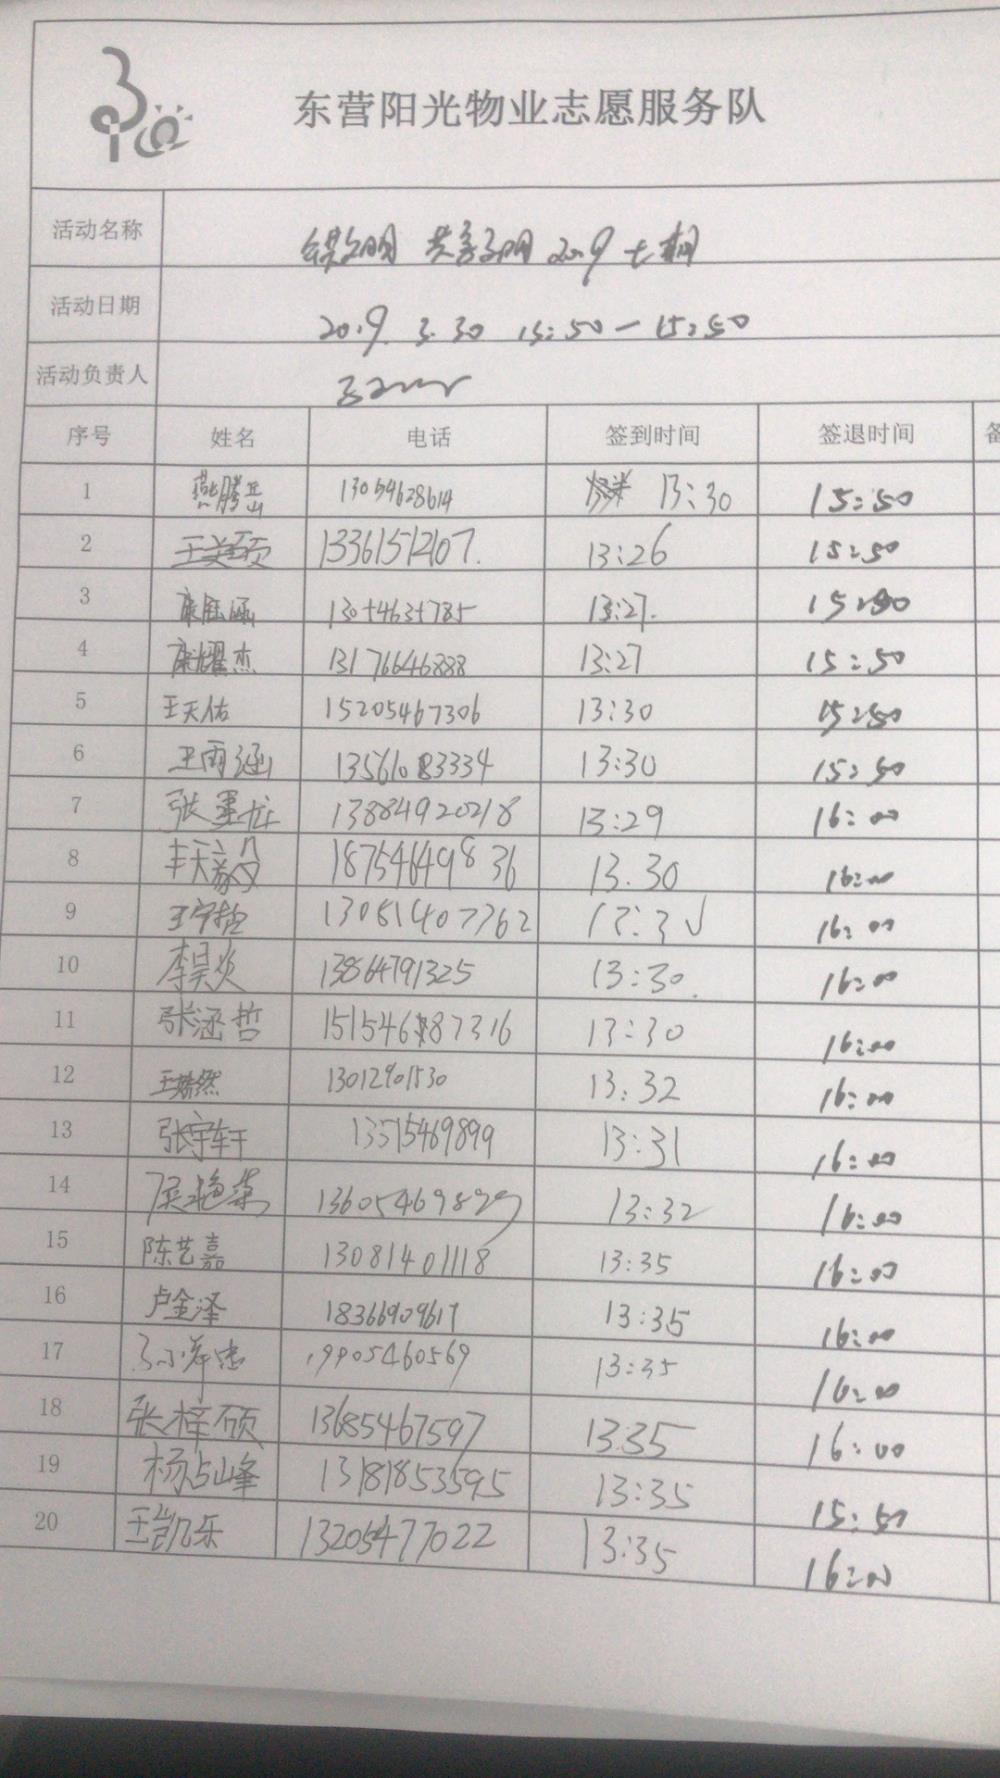 东营阳光物业志愿服务队
活动名称 文明 共享 2019
活动日期 2019. 3. 30 13:50—15:50
活动负责人
序号 姓名 电话 签到时间 签退时间 备
1 燕腾岳 13054628614 13:30 15:50
2 王美硕 13361512107. 13:26 15:50
3 康钰涵 13054635785 13:27. 15:50
4 康耀杰 13176646888 13:27 15:50
5 王天佑 15205467306 13:30 15:50
6 王雨涵 13561083334 13:30 15:50
7 张墨龙 13884920218 13:29 16:00
8 18754649836 13.30 16:00
9 王宇哲 13081407762 16:00
10 李昊炎 13864791325 13:30. 16:00
11 张涵哲 15154687316 13:30 16:00
12 王皓然 13012901530 13:32 16:00
13 张宇轩 13515469899 13:31 16:00
14 1360546982 13:32 16:00
15 陈艺嘉 13081401118 13:35 16:00
16 卢金泽 18366909617 13:35 16:00
17 19905460569 13:35 16:00
18 张梓硕 13685467597 13:35 16:00
19 杨占峰 13181853595 13:35 15:50
20 王凯乐 13205477022 13:35 16:00